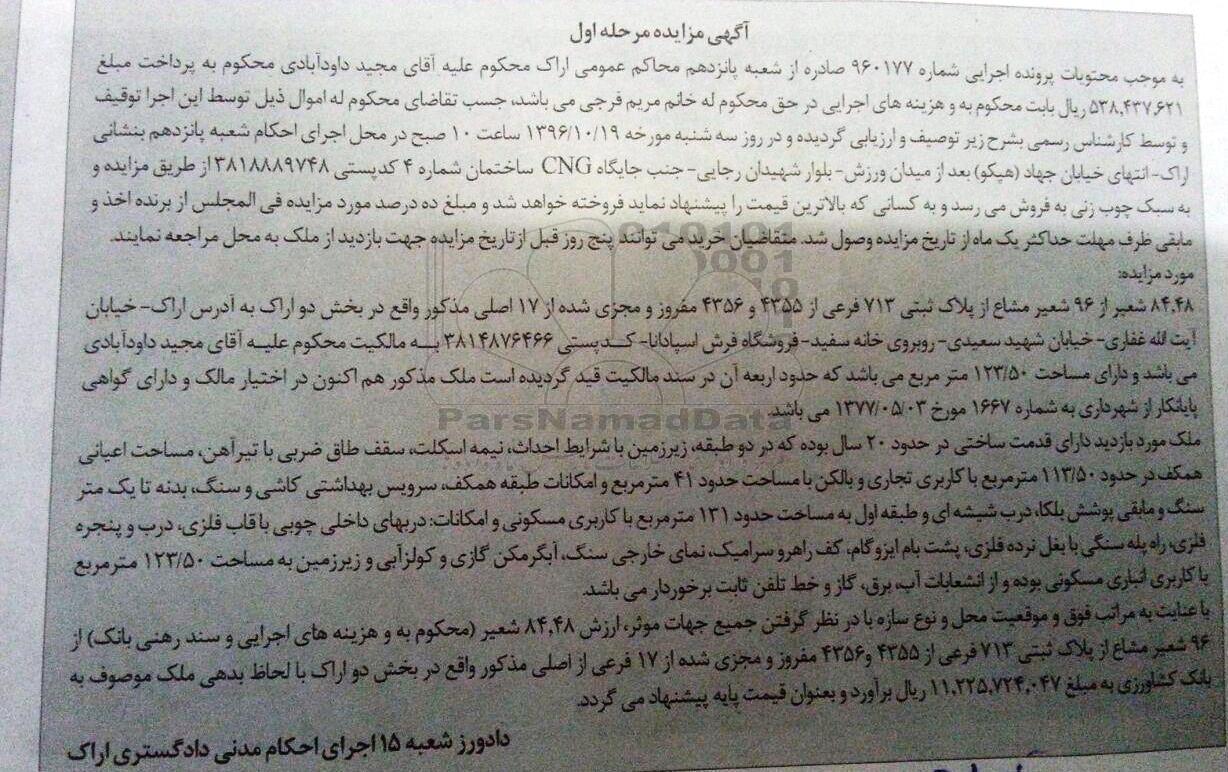 آگهی مزایده مرحله اول
به موجب محتویات پرونده اجرایی شماره ۹۶۰۱۷۷ صادره از شعبه پانزدهم محاکم عمومی اراک محکوم علیه آقای مجید داودآبادی محکوم به پرداخت مبلغ
۵۳۸,۴۳۷,۶۲۱ ریال بابت محکوم به و هزینه های اجرایی در حق محکوم له خانم مریم فرجی می باشد، حسب تقاضای محکوم له اموال ذیل توسط این اجرا توقیف
و توسط کارشناس رسمی بشرح زیر توصیف و ارزیابی گردیده و در روز سه شنبه مورخه ۱۳۹۶/۱۰/۱۹ ساعت ۱۰ صبح در محل اجرای احکام شعبه پانزدهم بنشانی
اراک- انتهای خیابان جهاد (هپکو) بعد از میدان ورزش- بلوار شهیدان رجایی- جنب جایگاه CNG ساختمان شماره ۴ کدپستی ۳۸۱۸۸۸۹۷۴۸ از طریق مزایده و
به سبک چوب زنی به فروش می رسد و به کسانی که بالاترین قیمت را پیشنهاد نماید فروخته خواهد شد و مبلغ ده درصد مورد مزایده فی المجلس از برنده اخذ و
مابقی ظرف مهلت حداکثر یک ماه از تاریخ مزایده وصول شد. متقاضیان خرید می توانند پنج روز قبل از تاریخ مزایده جهت بازدید از ملک به محل مراجعه نمایند.
مورد مزایده:
۸۴,۴۸ شعیر از ۹۶ شعیر مشاع از پلاک ثبتی ۷۱۳ فرعی از ۴۳۵۵ و ۴۳۵۶ مفروز و مجزی شده از ۱۷ اصلی مذکور واقع در بخش دو اراک به آدرس اراک- خیابان
آیت الله غفاری- خیابان شهید سعیدی- روبروی خانه سفید- فروشگاه فرش اسپادانا- کدپستی ۳۸۱۴۸۷۶۴۶۶ به مالکیت محکوم علیه آقای مجید داودآبادی
می باشد و دارای مساحت ۱۲۳/۵۰ متر مربع می باشد که حدود اربعه آن در سند مالکیت قید گردیده است ملک مذکور هم اکنون در اختیار مالک و دارای گواهی
پایانکار از شهرداری به شماره ۱۶۶۷ مورخ ۱۳۷۷/۰۵/۰۳ می باشد.
ParsNamadData
ملک مورد بازدید دارای قدمت ساختی در حدود ۲۰ سال بوده که در دو طبقه، زیرزمین با شرایط احداث، نیمه اسکلت، سقف طاق ضربی با تیرآهن، مساحت اعیانی
همکف در حدود ۱۱۳/۵۰ مترمربع با کاربری تجاری و بالکن با مساحت حدود ۴۱ مترمربع و امکانات طبقه همکف، سرویس بهداشتی کاشی و سنگ، بدنه تا یک متر
سنگ و مابقی پوشش بلکا، درب شیشه ای و طبقه اول به مساحت حدود ۱۳۱ مترمربع با کاربری مسکونی و امکانات: دربهای داخلی چوبی با قاب فلزی، درب و پنجره
فلزی، راه پله سنگی با بغل نرده فلزی، پشت بام ایزوگام، کف راهرو سرامیک، نمای خارجی سنگ، آبگرمکن گازی و کولرآبی و زیرزمین به مساحت ۱۲۳/۵۰ مترمربع
با کاربری انباری مسکونی بوده و از انشعابات آب، برق، گاز و خط تلفن ثابت برخوردار می باشد.
با عنایت به مراتب فوق و موقعیت محل و نوع سازه با در نظر گرفتن جمیع جهات موثر، ارزش ۸۴,۴۸ شعیر (محکوم به و هزینه های اجرایی و سند رهنی بانک) از
۹۶ شعیر مشاع از پلاک ثبتی ۷۱۳ فرعی از ۴۳۵۵ و ۴۳۵۶ مفروز و مجزی شده از ۱۷ فرعی از اصلی مذکور واقع در بخش دو اراک با لحاظ بدهی ملک موصوف به
بانک کشاورزی به مبلغ ۱۱,۲۲۵,۷۲۴,۰۴۷ ریال برآورد و بعنوان قیمت پایه پیشنهاد می گردد.
دادورز شعبه ۱۵ اجرای احکام مدنی دادگستری اراک